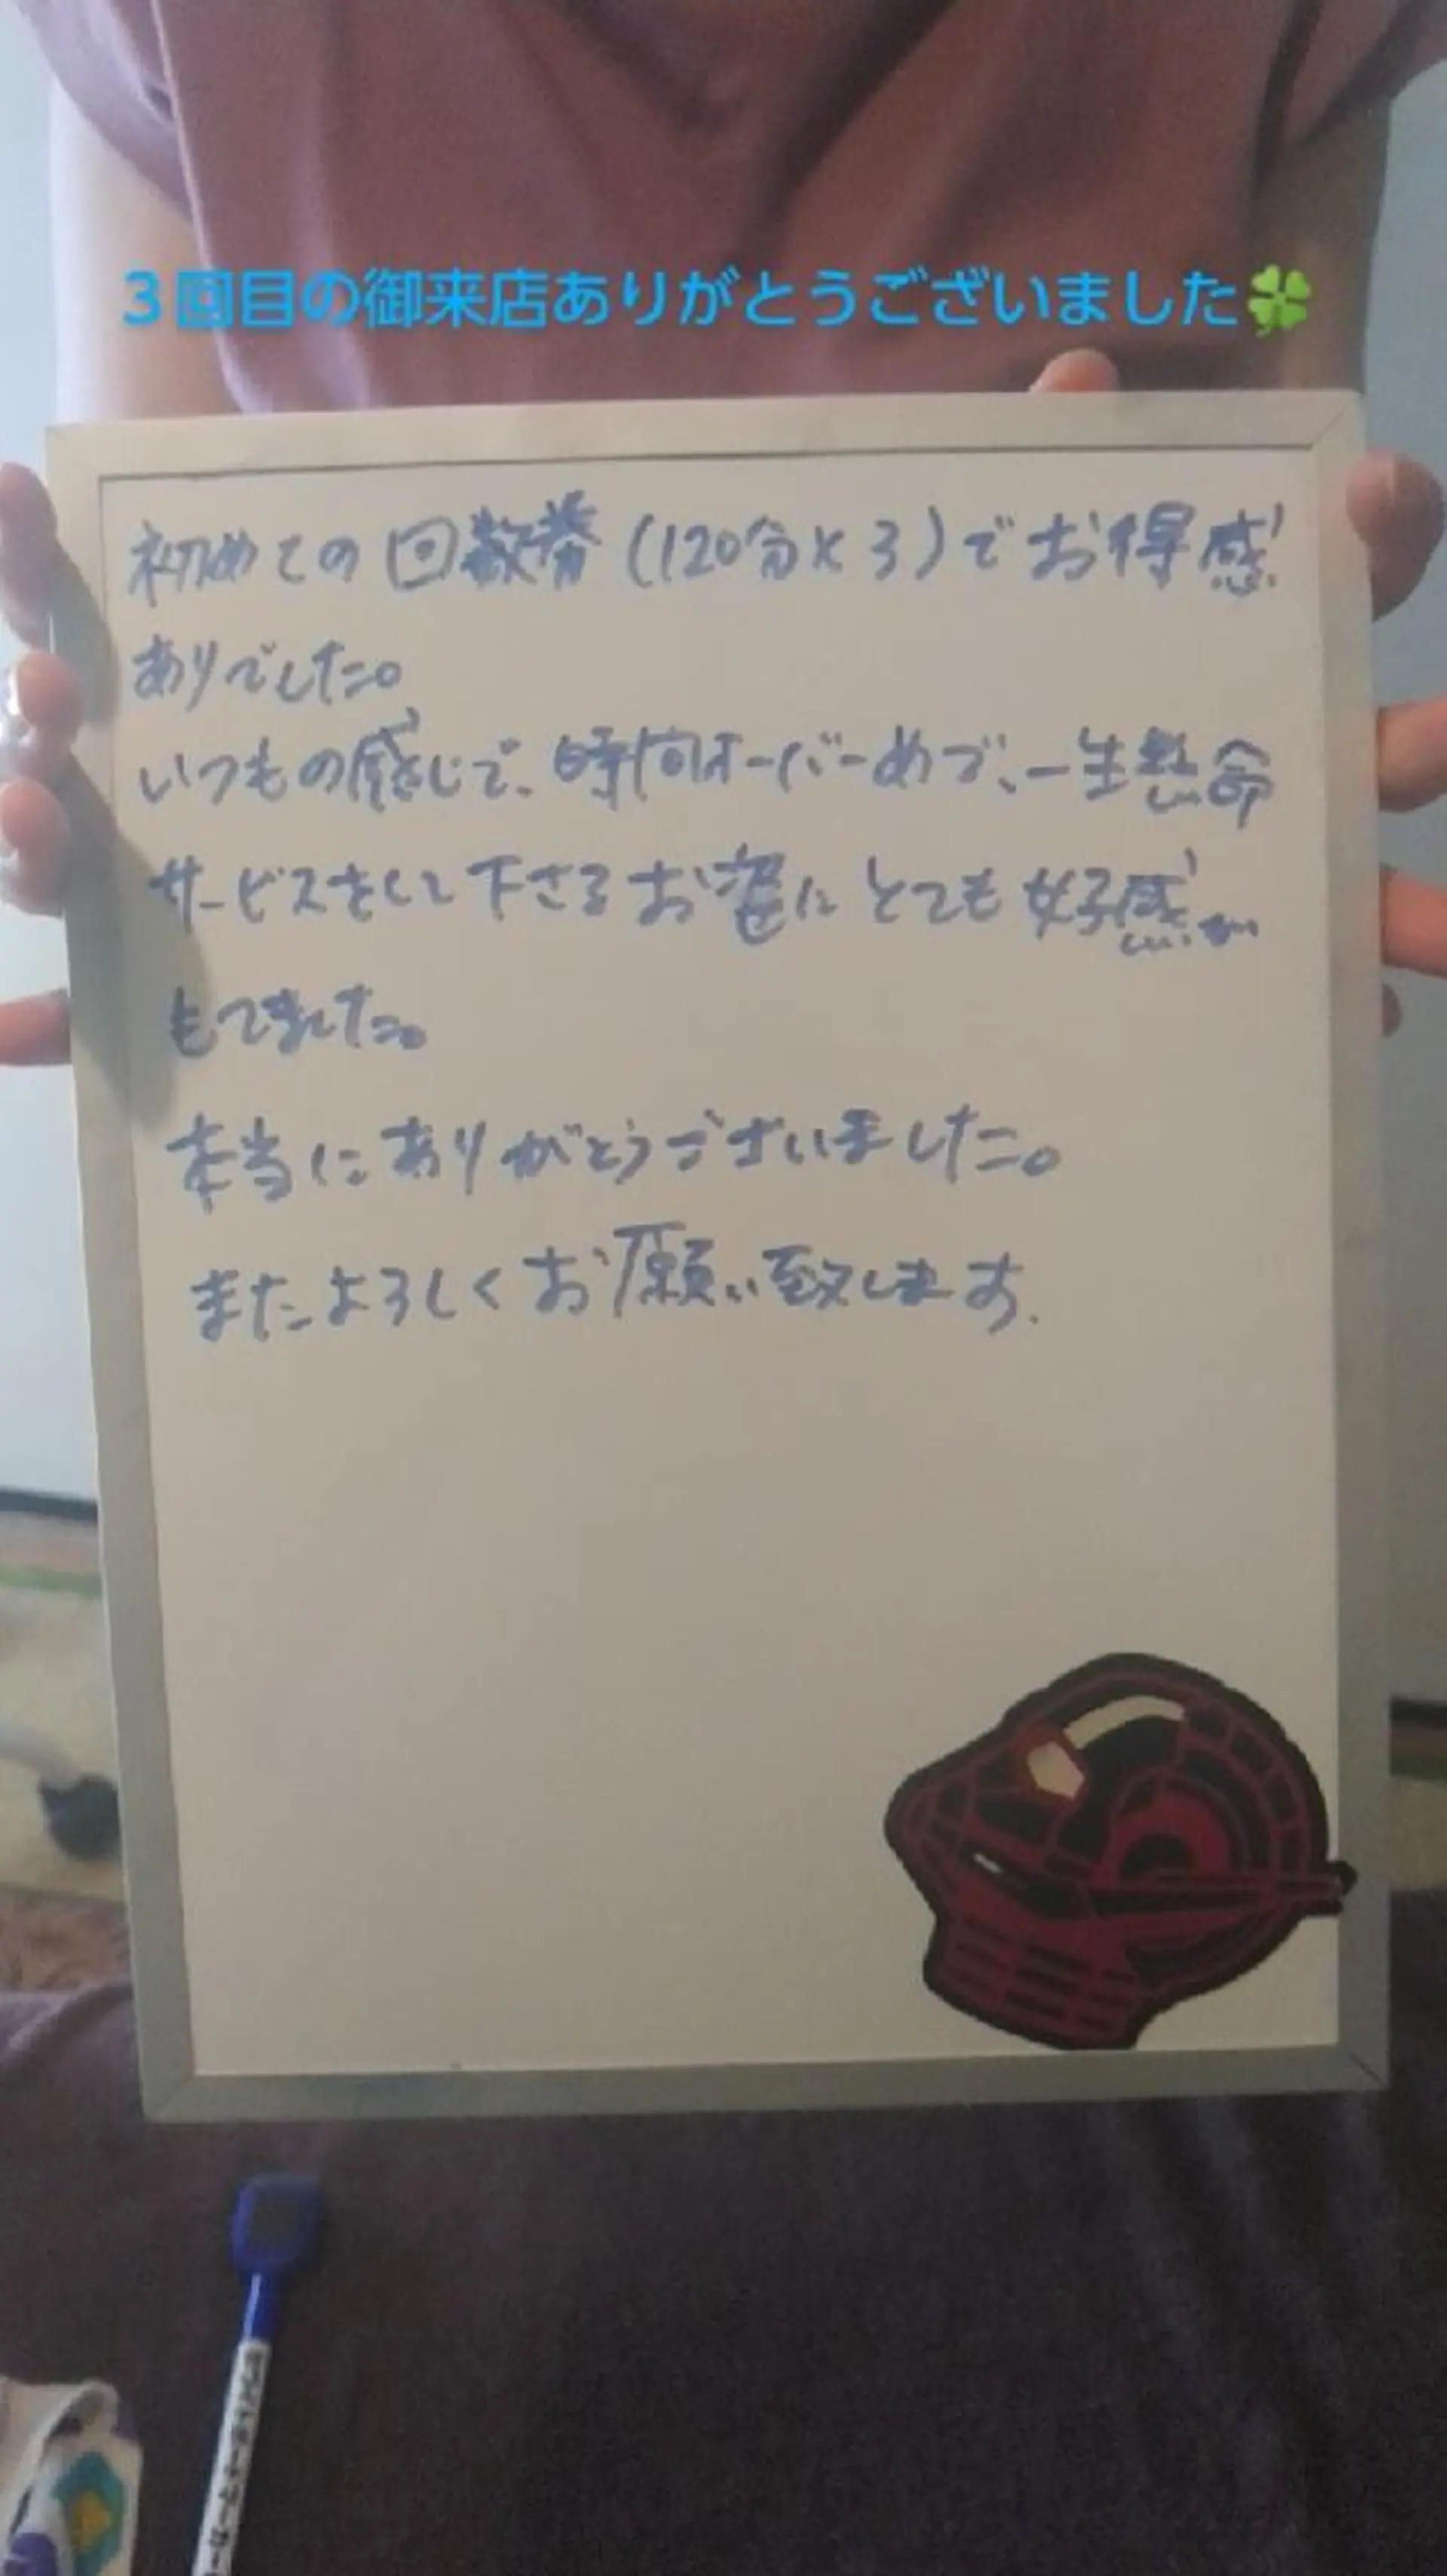 3回目の御来店ありがとうございました🍀
初めての回数券(120分×3)でお得感
ありでした。
いつもの感じで、時間オーバーめで、一生懸命
サービスをして下さるお姿にとても好感が
もてました。
本当にありがとうございました。
またよろしくお願い致します.